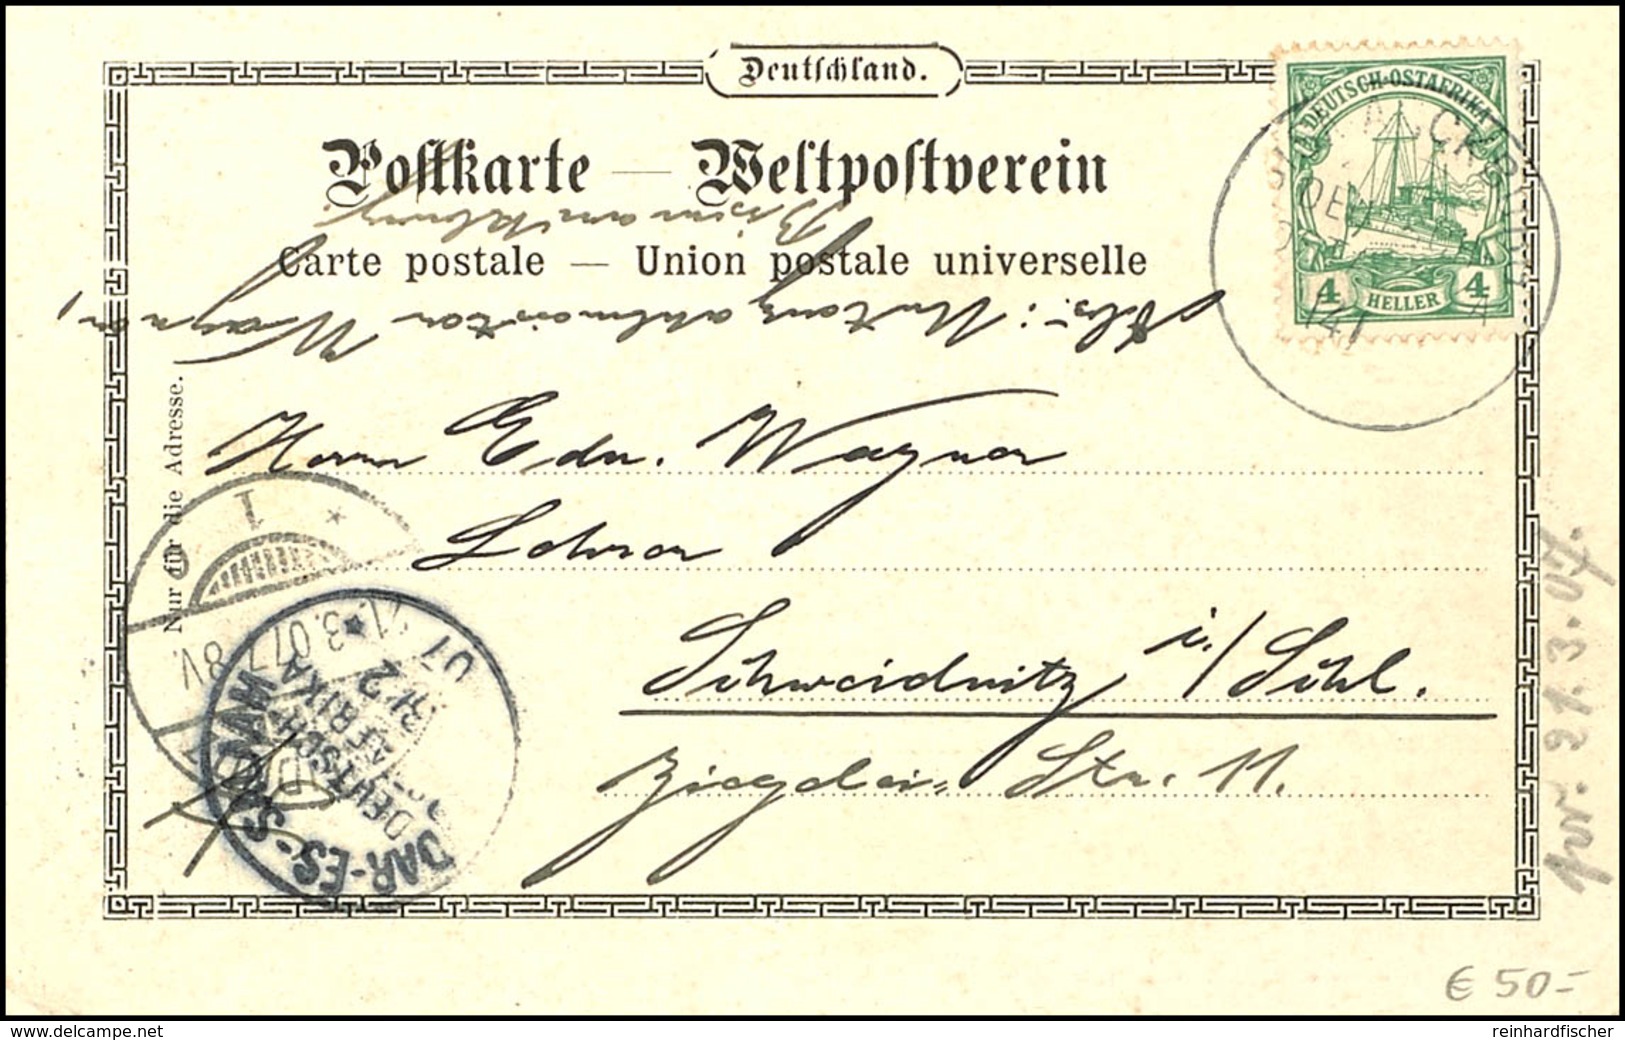 Deutschland.
Postkarte — Weltpostverein
Carte postale — Union postale universelle
DEUTSCH-OSTAFRIKA
4 HELLER 4
Abs.:
Wagner,
Nur für die Adresse.
Herrn Edu. Wagner
Lehrer
Schweidnitz i./Schl.
Ziegelei Str. 11.
1
21.3.07. 7-8V.
DAR-ES-SALAAM
DEUTSCH
AFRIKA
2
07
21.3.07.
€ 50-
delcampe.net
reinhardfischer